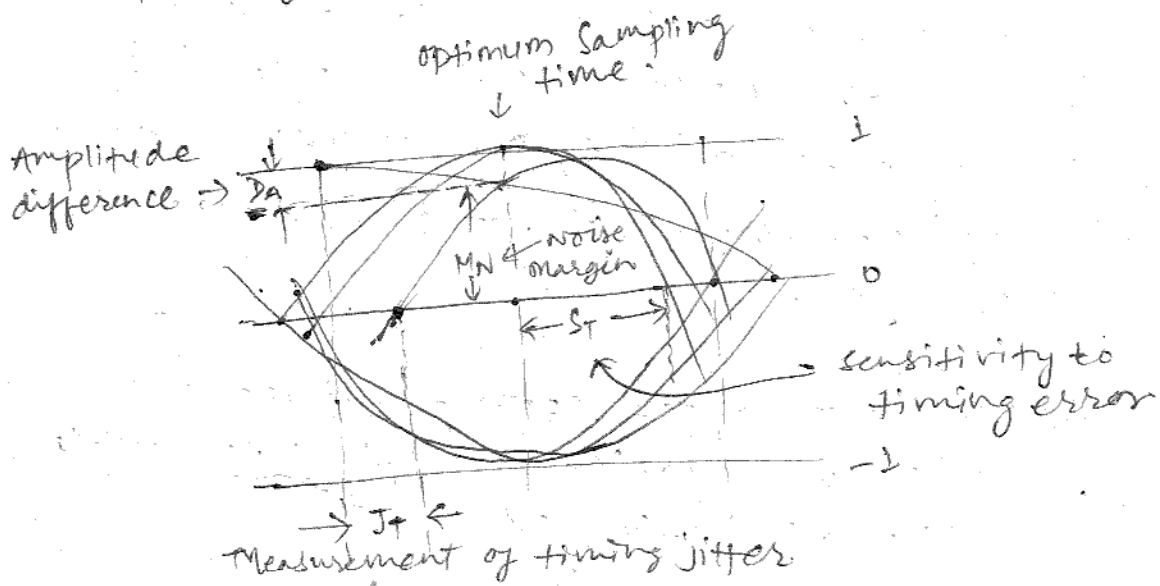 optimum Sampling
time.
1
Amplitude
difference → DA
MN ← Noise
margin
0
ST
sensitivity to
timing error
-1
JT
Measurement of timing jitter